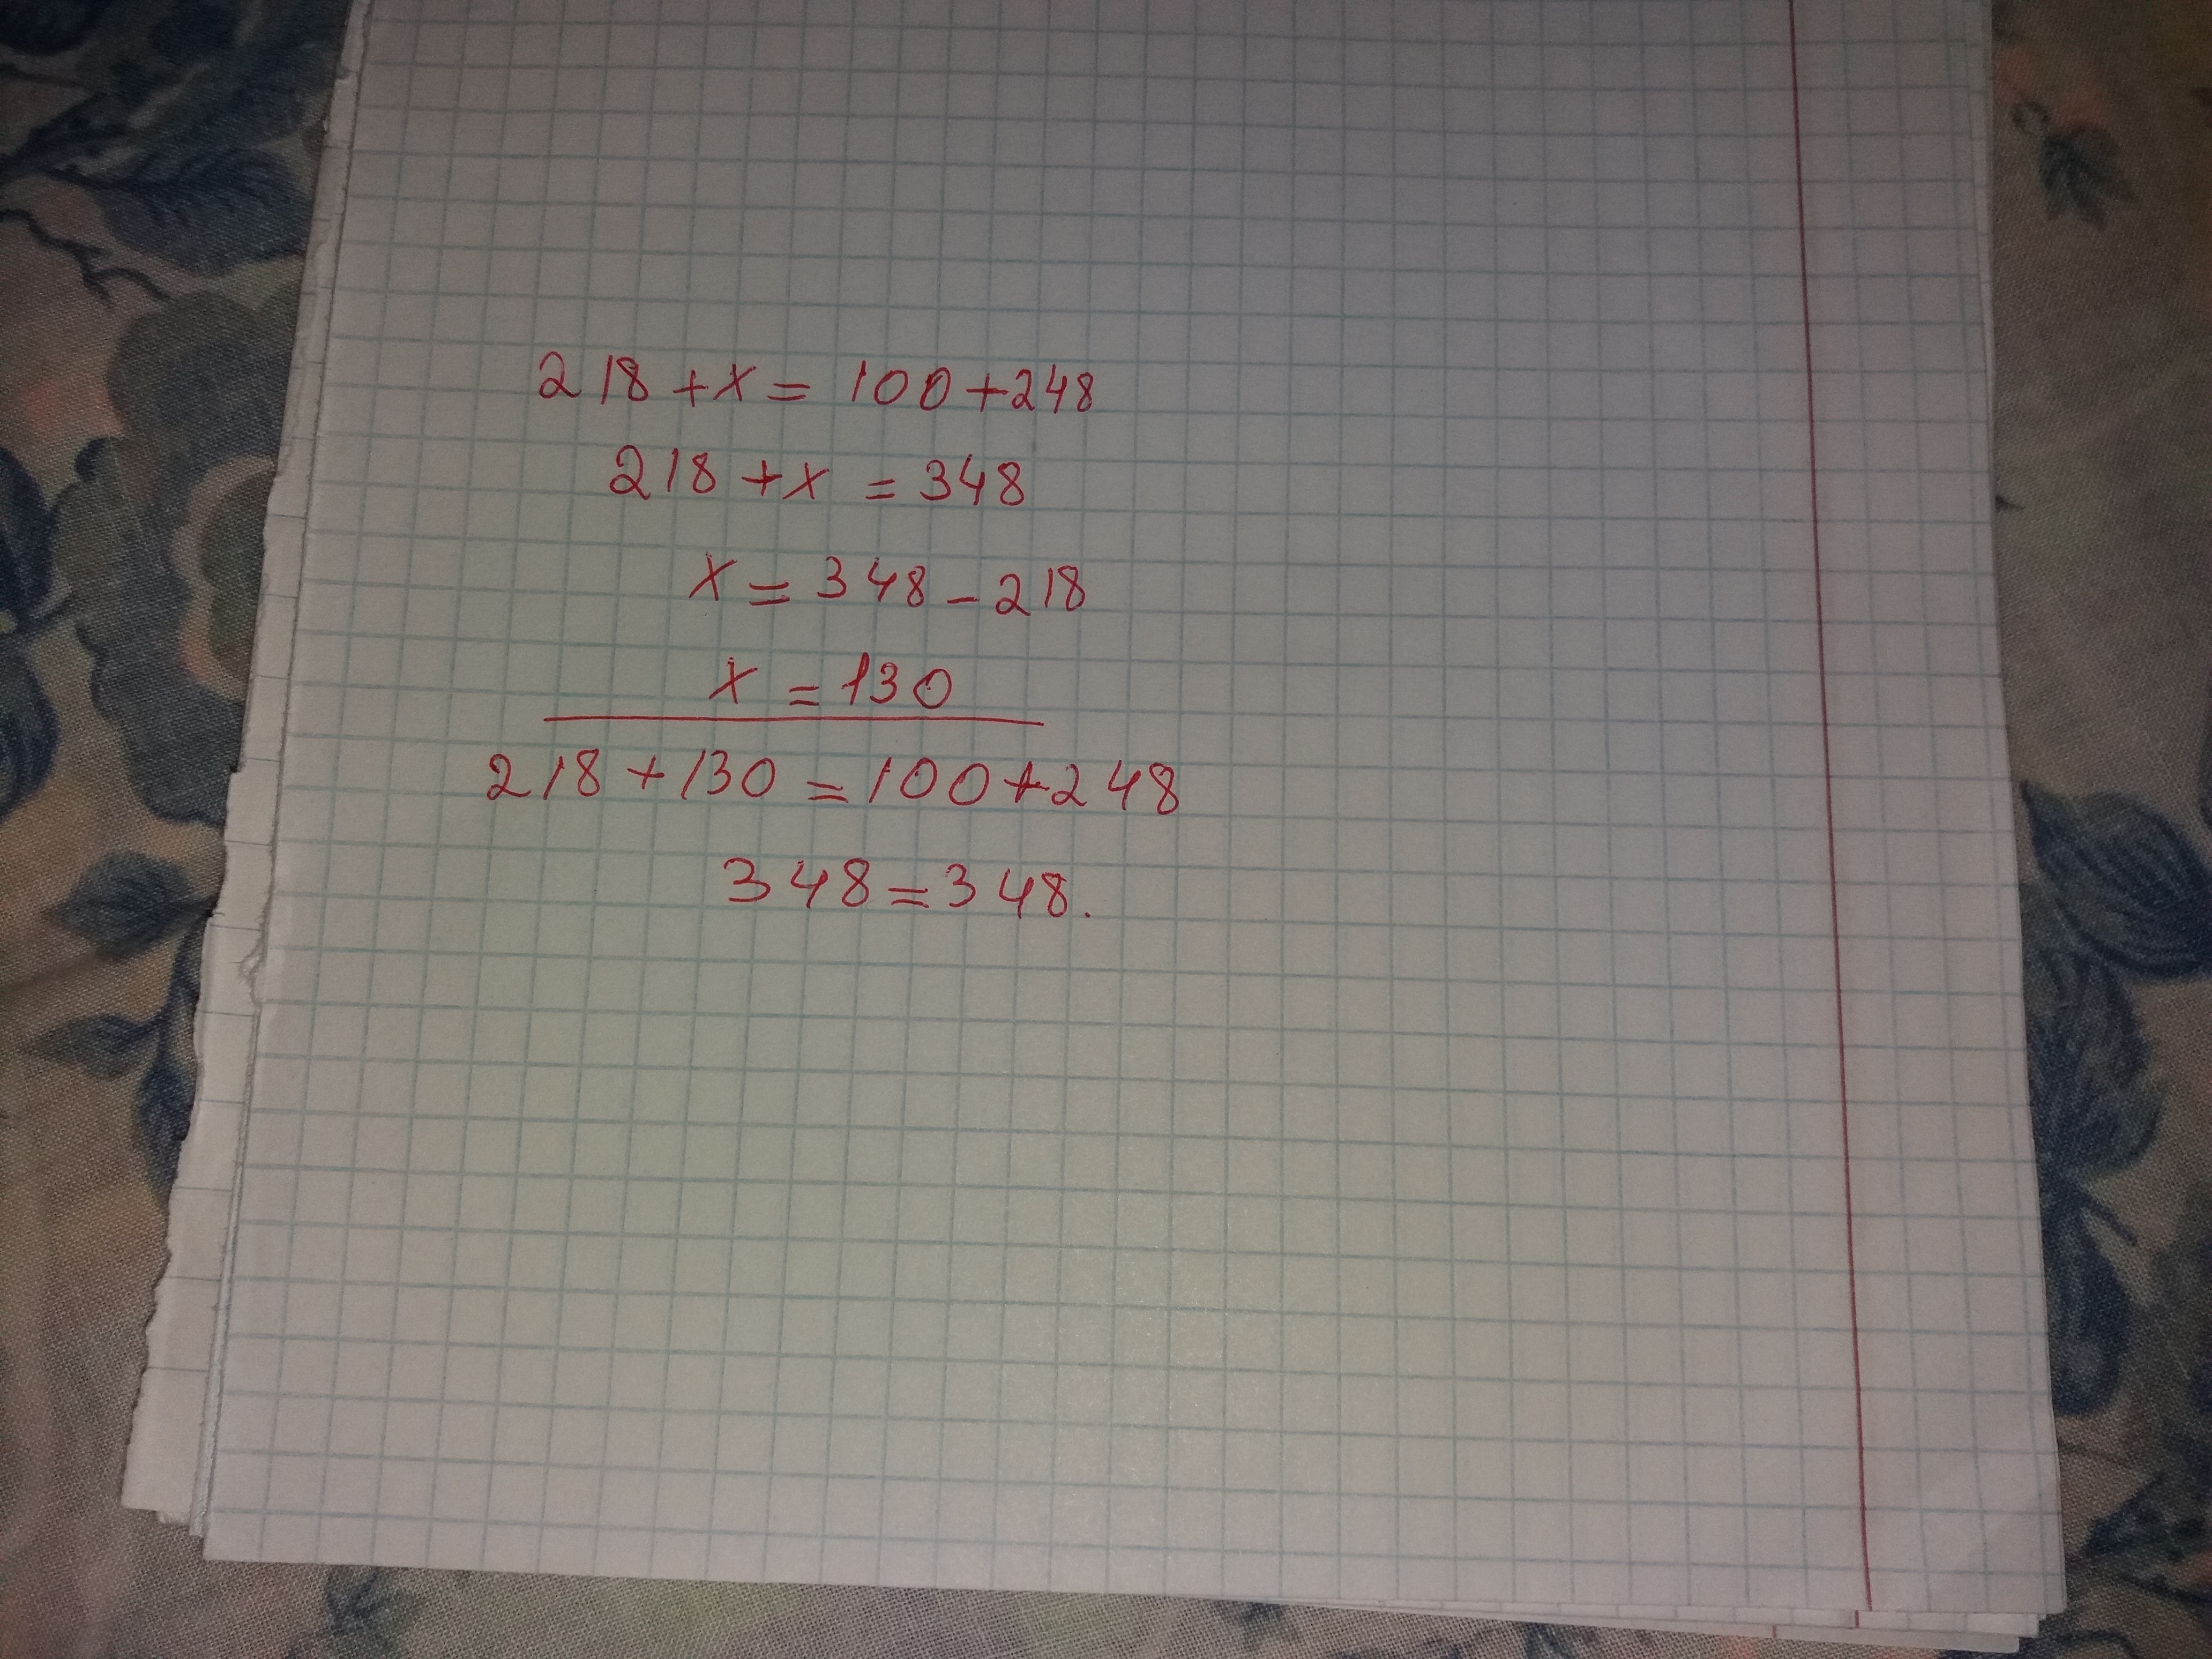 218 + x = 100 + 248
218 + x = 348
x = 348 - 218
x = 130
218 + 130 = 100 + 248
348 = 348.